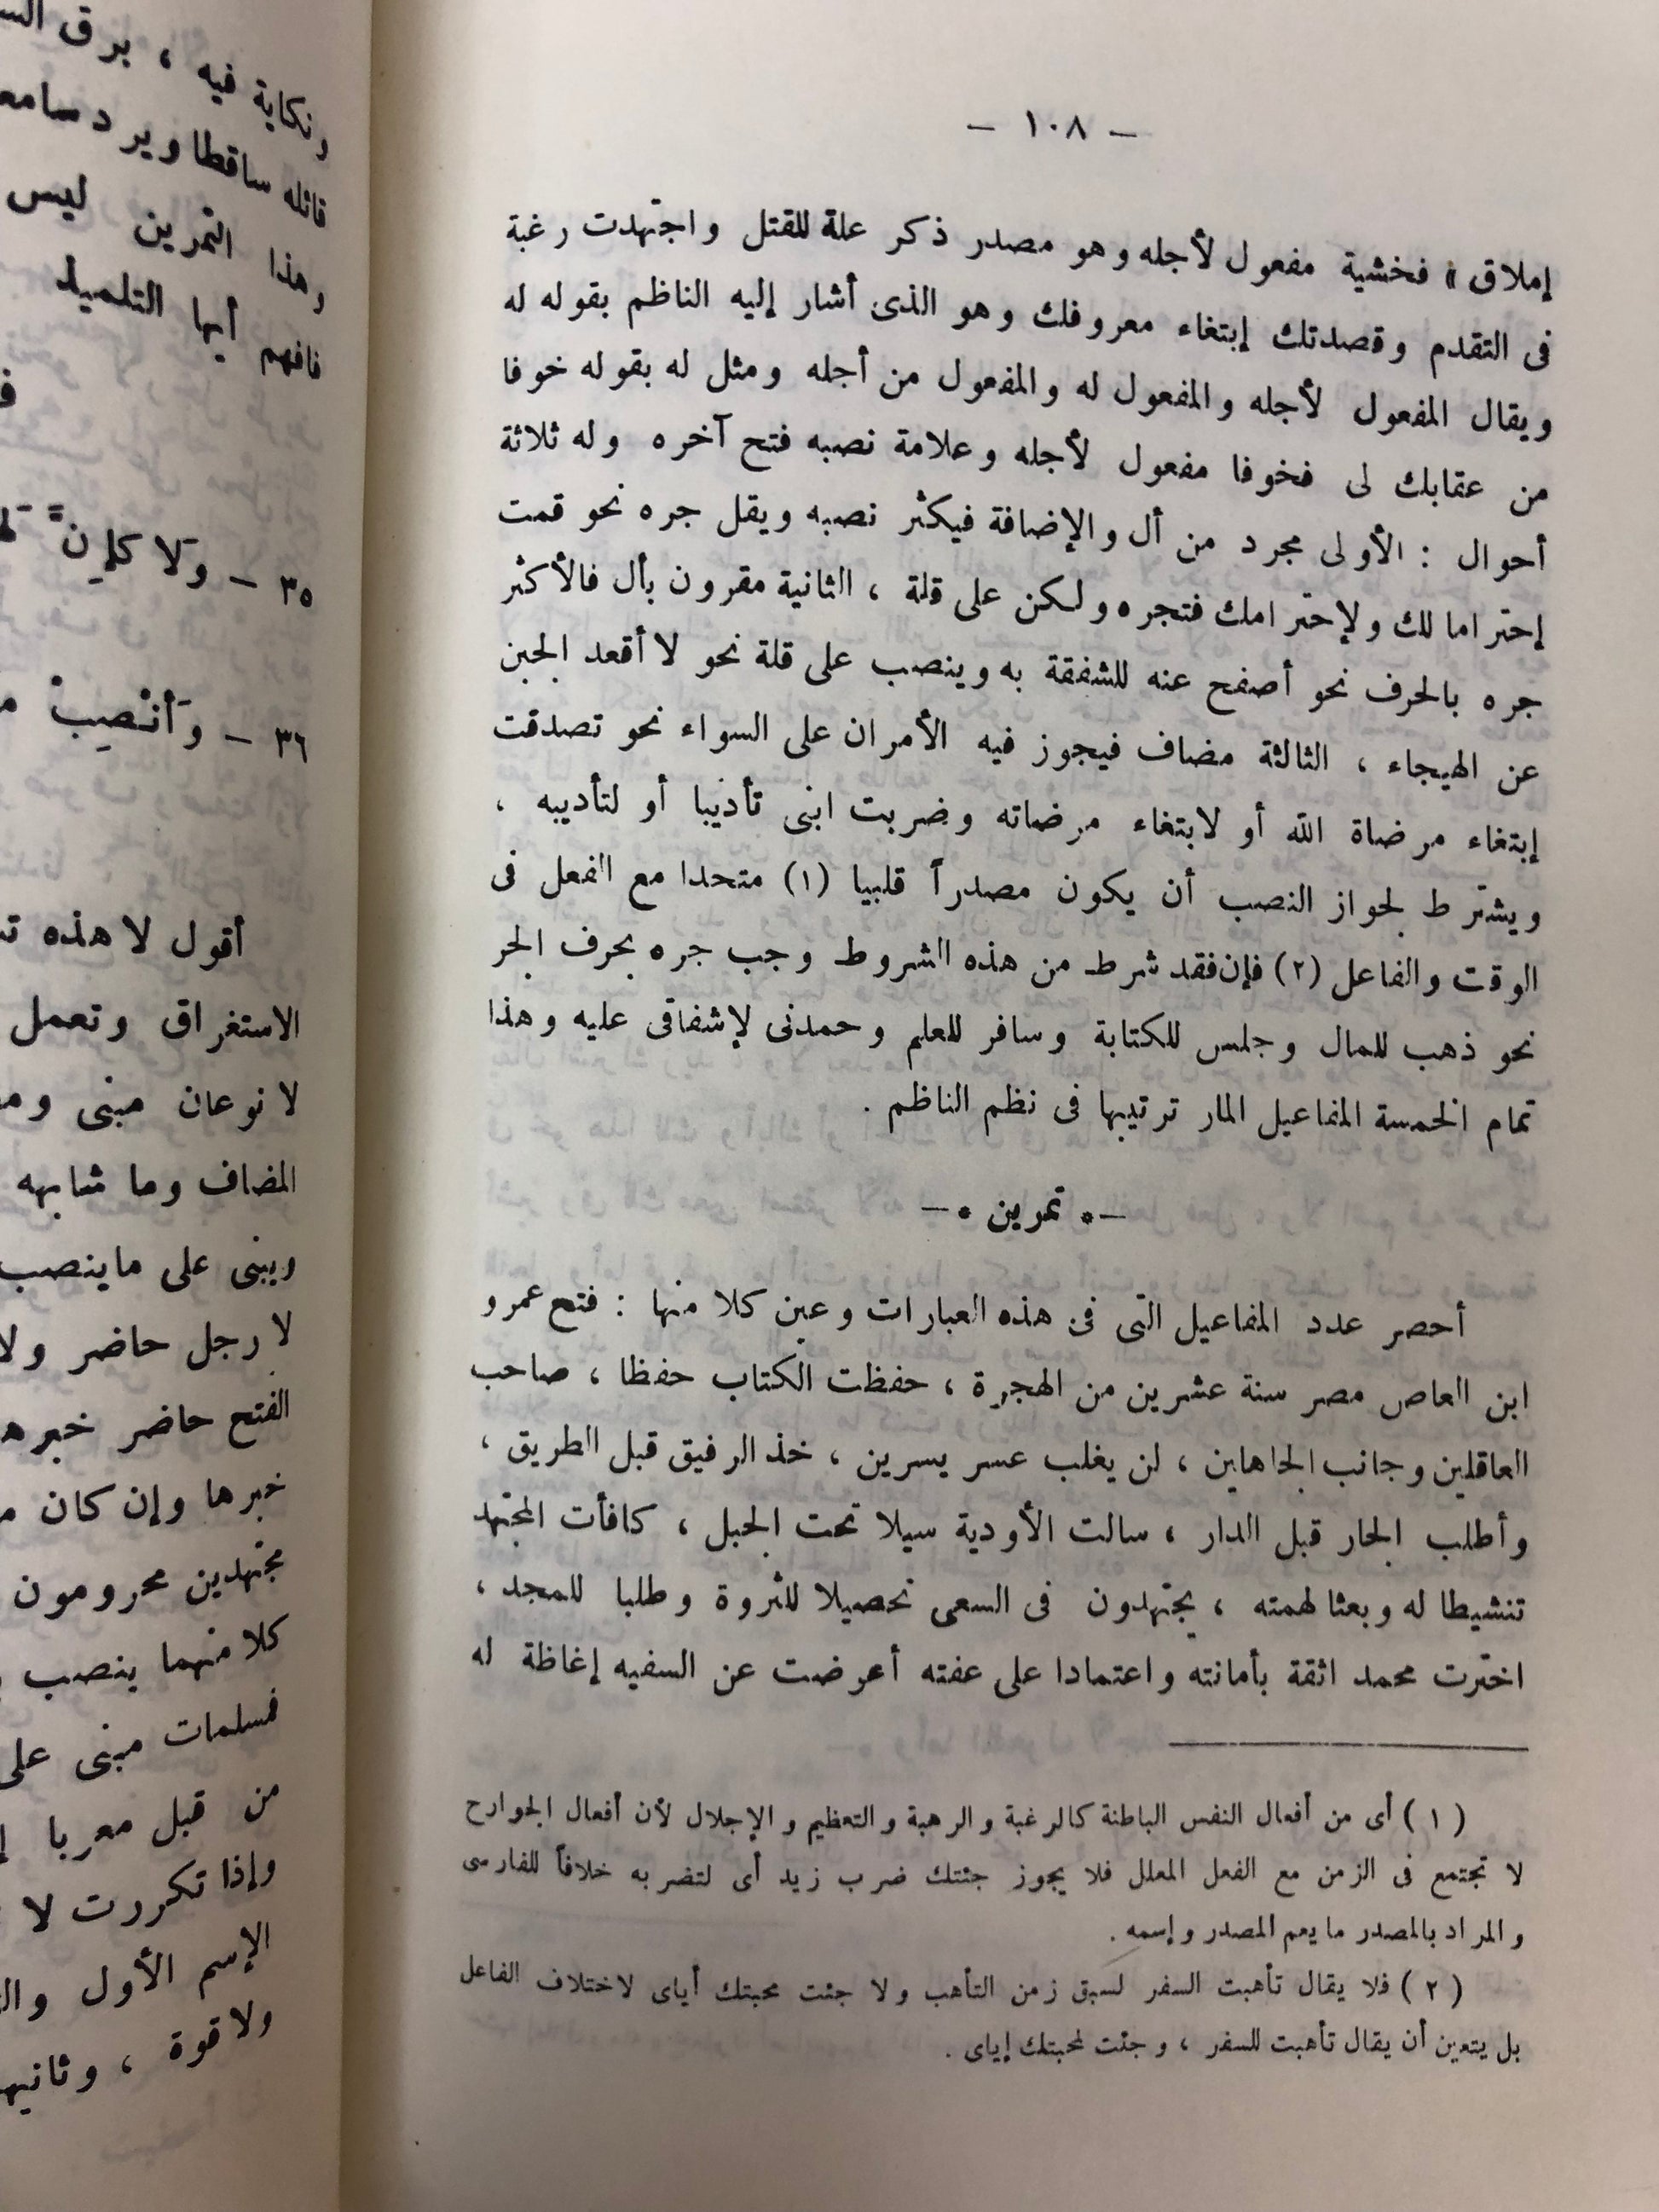 — ١٠٨ —
إملاق » فخشية مفعول لأجله وهو مصدر ذكر علة للقتل واجتهدت رغبة
فى التقدم وقصدتك إبتغاء معروفك وهو الذى أشار إليه الناظم بقوله له
ويقال المفعول لأجله والمفعول له والمفعول من أجله ومثل له بقوله خوفا
من عقابك لى فخوفا مفعول لأجله وعلامة نصبه فتح آخره وله ثلاثة
أحوال : الأولى مجرد من أل والإضافة فيكثر نصبه ويقل جره نحو قمت
إحتراما لك ولإحترامك فتجره ولكن على قلة ، الثانية مقرون بأل فالأكثر
جره بالحرف نحو أصفح عنه للشفقة به وينصب على قلة نحو لا أقعد الجبن
عن الهيجاء ، الثالثة مضاف فيجوز فيه الأمران على السواء نحو تصدقت
إبتغاء مرضاة الله أو لابتغاء مرضاته وضربت ابنى تأديبا أو لتأديبه ،
ويشترط لجواز النصب أن يكون مصدراً قلبيا (١) متحدا مع الفعل فى
الوقت والفاعل (٢) فإن فقد شرط من هذه الشروط وجب جره بحرف الجر
نحو ذهب للمال وجلس للكتابة وسافر للعلم وحمدنى لإشفاقى عليه وهذا
تمام الخمسة المفاعيل المار ترتيبها فى نظم الناظم .
—• تمرين •—
أحصر عدد المفاعيل التى فى هذه العبارات وعين كلا منها : فتح عمرو
ابن العاص مصر سنة عشرين من الهجرة ، حفظت الكتاب حفظا ، صاحب
العاقلين وجانب الجاهلين ، لن يغلب عسر يسرين ، خذ الرفيق قبل الطريق ،
وأطلب الجار قبل الدار ، سالت الأودية سيلا تحت الجبل ، كافأت المجتهد
تنشيطا له وبعثا لهمته ، يجتهدون فى السعى تحصيلا للثروة وطلبا للمجد ،
اخترت محمد اثقة بأمانته واعتمادا على عفته أعرضت عن السفيه إغاظة له
( ١ ) أى من أفعال النفس الباطنة كالرغبة والرهبة والتعظيم والإجلال لأن أفعال الجوارح
لا تجتمع فى الزمن مع الفعل المعلل فلا يجوز جئتك ضرب زيد أى لتضربه خلافاً للفارسى
والمراد بالمصدر ما يعم المصدر وإسمه .
( ٢ ) فلا يقال تأهبت السفر لسبق زمن التأهب ولا جئت محبتك أياى لاختلاف الفاعل
بل يتعين أن يقال تأهبت للسفر ، وجئت لمحبتك إياى .
ونكاية فيه ، برق
قائله ساقطا ويرد سامعه
وهذا التمرين ليس
فافهم أيها التلميذ
٣٥ — وَلا كَإِنَّ
٣٦ — وَأنْصِبْ
أقول لا هذه
الاستغراق وتعمل
لا نوعان مبنى
المضاف وما شابهه
ويبنى على ماينصب
لا رجل حاضر ولا
الفتح حاضر خبرها
خبرها وإن كان
مجتهدين محرومون
كلا منهما ينصب
فمسلمات مبنى على
من قبل معربا
وإذا تكررت لا
الإسم الأول
ولا قوة ، وثانيها